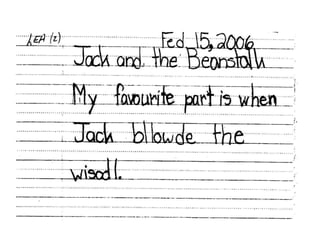 LEA (2) Fed 15, 2006
Jack and the Beanstalk
My favourite part is when
Jack bllowde the
wisodl.